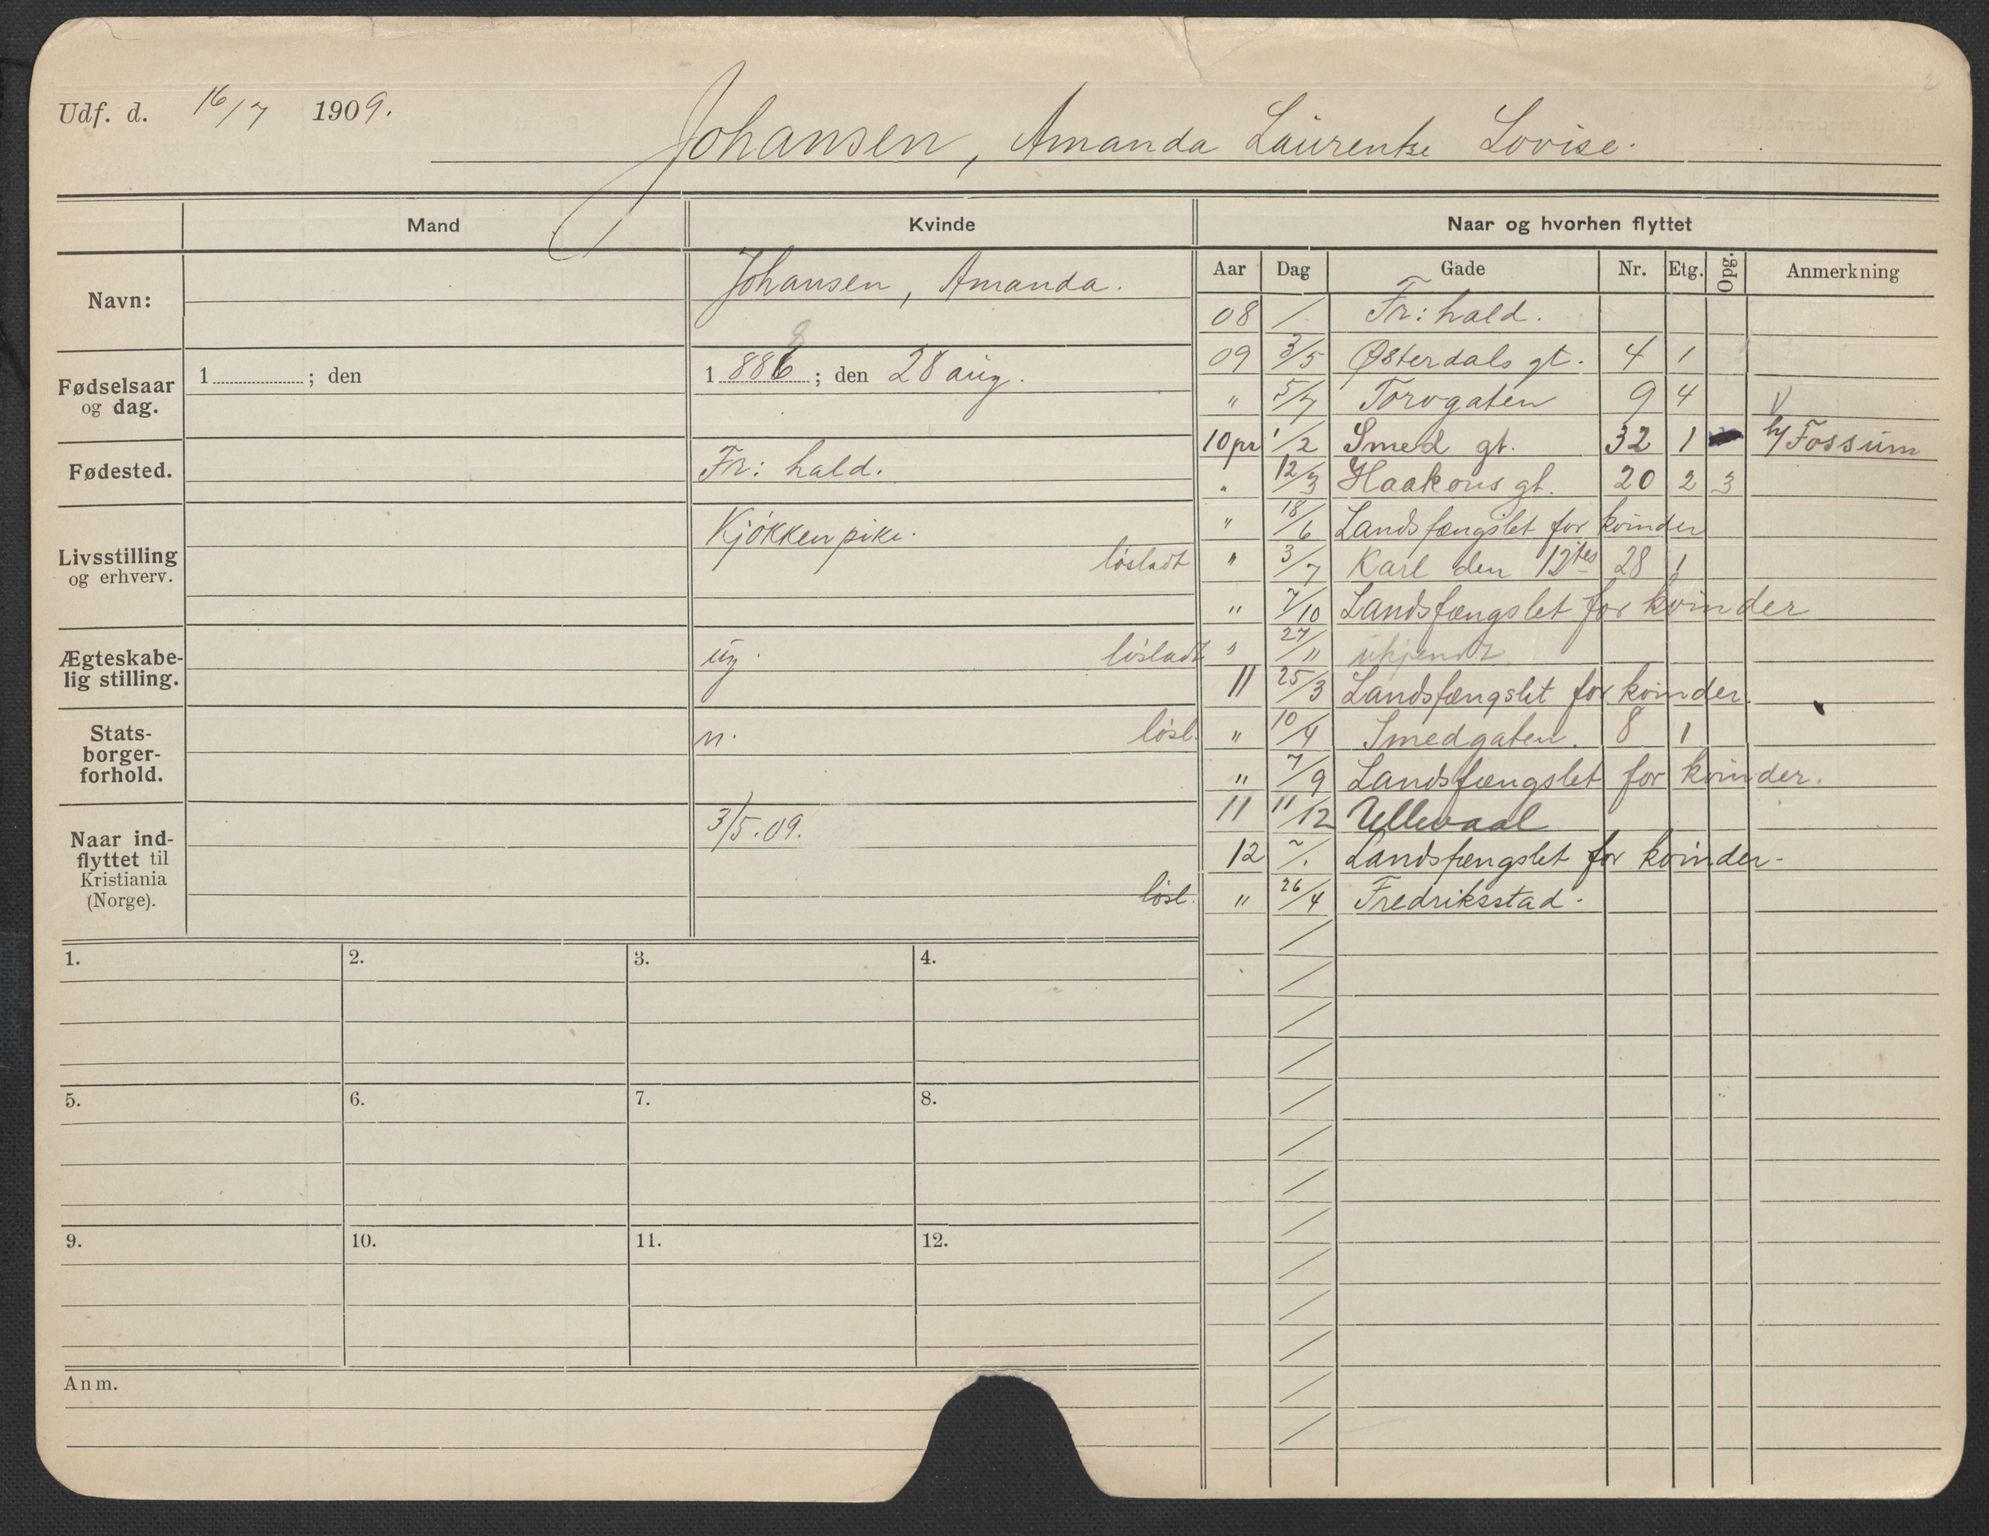 Udf. d. 16/7 1909.
Johansen, Amanda Laurentze Lovise.
Mand
Kvinde
Naar og hvorhen flyttet
Aar Dag Gade Nr. Etg. Opg. Anmerkning
Navn:
Johansen, Amanda.
Fødselsaar
og dag.
1 ; den
8
1 886 ; den 28 aug.
Fødested.
Fr: hald.
Livsstilling
og erhverv.
Kjøkkenpike.
Ægteskabe-
lig stilling.
ug.
Stats-
borger-
forhold.
n.
Naar ind-
flyttet til
Kristiania
(Norge).
3/5.09.
08 / Fr: hald.
09 3/5 Østerdals gt. 4 1
" 5/7 Torvgaten 9 4
10 pr 1/2 Smed gt. 32 1 h/ Fossum
" 12/3 Haakons gt. 20 2 3
" 18/6 Landsfængslet for kvinder
løsladt " 3/7 Karl den 12tes 28 1
" 7/10 Landsfængslet for kvinder
løsladt " 27/11 ukjendt
11 25/3 Landsfængslet for kvinder.
løsl. " 10/4 Smedgaten. 8 1
" 7/9 Landsfængslet for kvinder.
11 11/12 Ullevaal
12 ~/. Landsfængslet for kvinder-
løsl. " 26/4 Fredriksstad.
1. 2. 3. 4.
5. 6. 7. 8.
9. 10. 11. 12.
Anm.